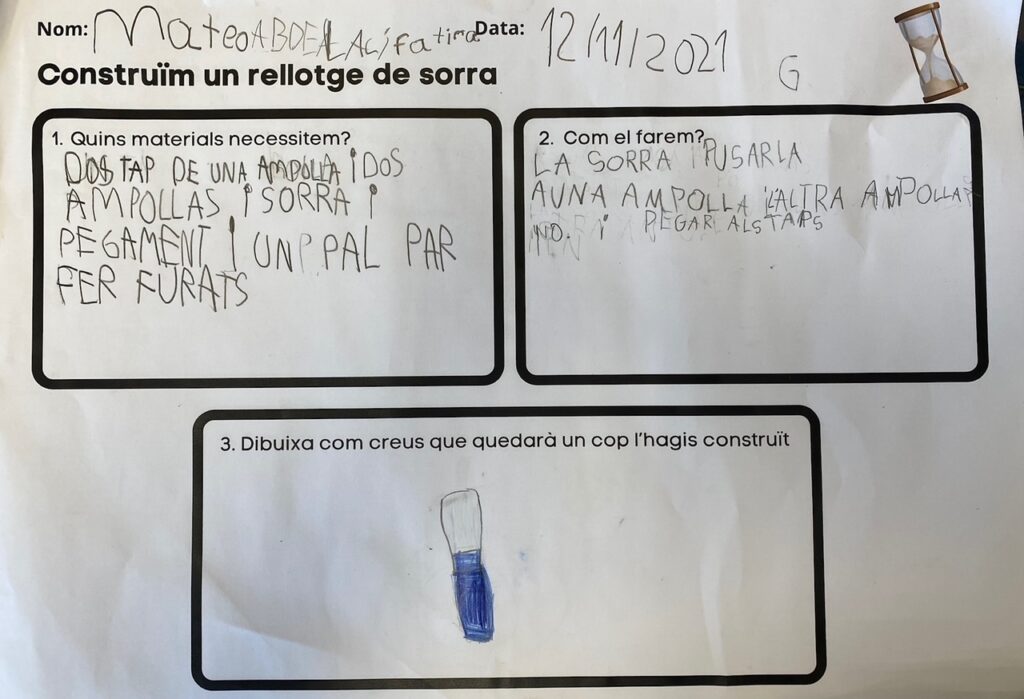 Nom: Mateo ABDEL ALi fatima Data: 12/11/2021
G
Construïm un rellotge de sorra
1. Quins materials necessitem?
DOS TAP DE UNA AMPOLLA I DOS
AMPOLLAS I SORRA I
PEGAMENT I UN PAL PAR
FER FURATS
2. Com el farem?
LA SORRA PUSARLA
AUNA AMPOLLA I L'ALTRA AMPOLLA
NO. I PEGAR ALS TAPS
3. Dibuixa com creus que quedarà un cop l'hagis construït